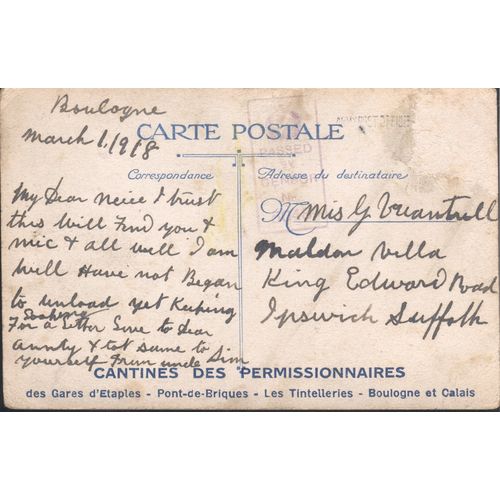 Boulogne
March 1, 1918
CARTE POSTALE
ARMY POST OFFICE
PASSED
BY
CENSOR
No
Correspondance
Adresse du destinataire
My Dear Neice I trust
this Will Find you &
mic & all Well I am
Well Have not Began
to unload yet Keeping
Looking
For a Letter Love to Dear
Aunty & tot same to
yourself From uncle Sim
M Mis G
Maldon Villa
King Edward Road
Ipswich Suffolk
CANTINES DES PERMISSIONNAIRES
des Gares d'Etaples - Pont-de-Briques - Les Tintelleries - Boulogne et Calais